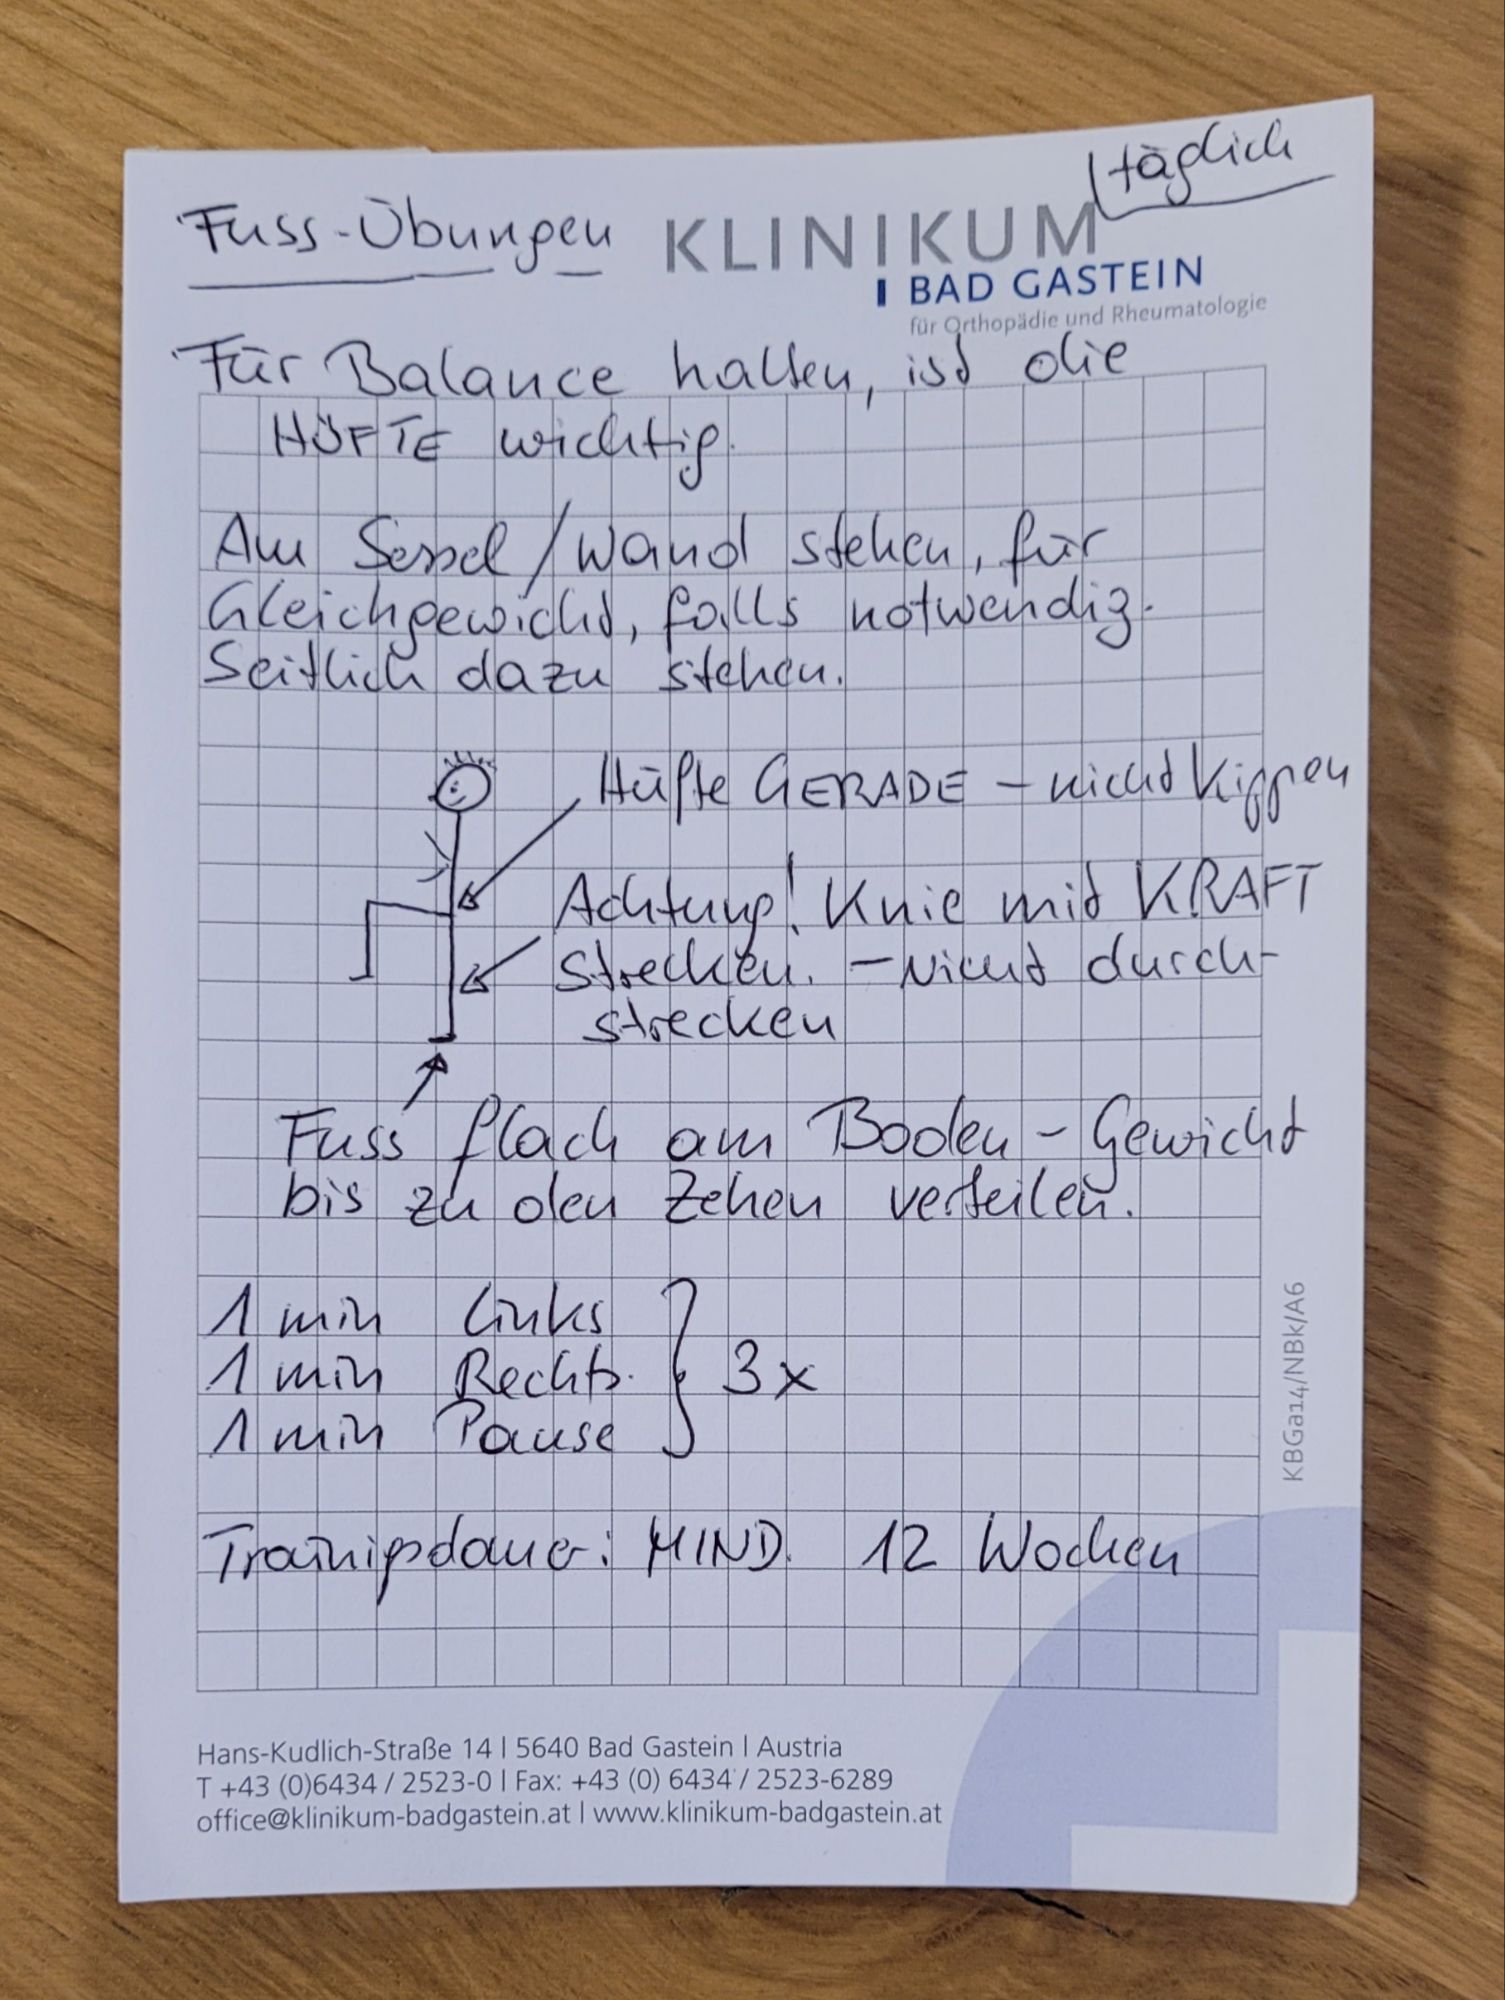 täglich
Fuss-Übungen
KLINIKUM
BAD GASTEIN
für Orthopädie und Rheumatologie
Für Balance halten, ist die
HÜFTE wichtig.
Am Sessel/Wand stehen, für
Gleichgewicht, falls notwendig.
Seitlich dazu stehen.
Hüfte GERADE - nicht kippen
Achtung! Knie mit KRAFT
strecken. - Nicht durch-
strecken
Fuss flach am Boden - Gewicht
bis zu den Zehen verteilen.
1 min Links
1 min Rechts.
1 min Pause
} 3x
Trainingsdauer: MIND. 12 Wochen
KBGa14/NBk/A6
Hans-Kudlich-Straße 14 | 5640 Bad Gastein | Austria
T +43 (0)6434 / 2523-0 | Fax: +43 (0) 6434 / 2523-6289
office@klinikum-badgastein.at | www.klinikum-badgastein.at